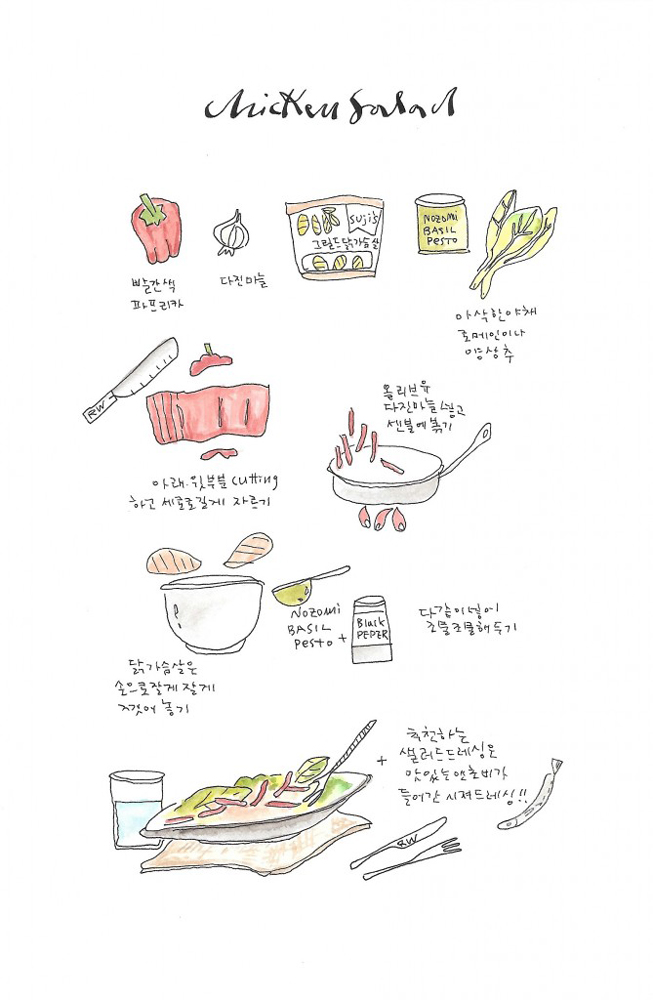 chicken salad
빨간색
파프리카
다진마늘
suji's
그릴드닭가슴살
NOZOMi
BASIL
PESTO
아삭한야채
로메인이나
양상추
RW
아래.윗부분 cutting
하고 세로로길게 자르기
올리브유
다진마늘 넣고
센불에볶기
닭가슴살은
손으로잘게 잘게
찢어 놓기
NOZOMi
BASIL
PESTO +
Black
PEPER
다같이넣어
조물조물해두기
+
추천하는
샐러드드레싱은
맛있는앤초비가
들어간 시져드레싱!!
RW